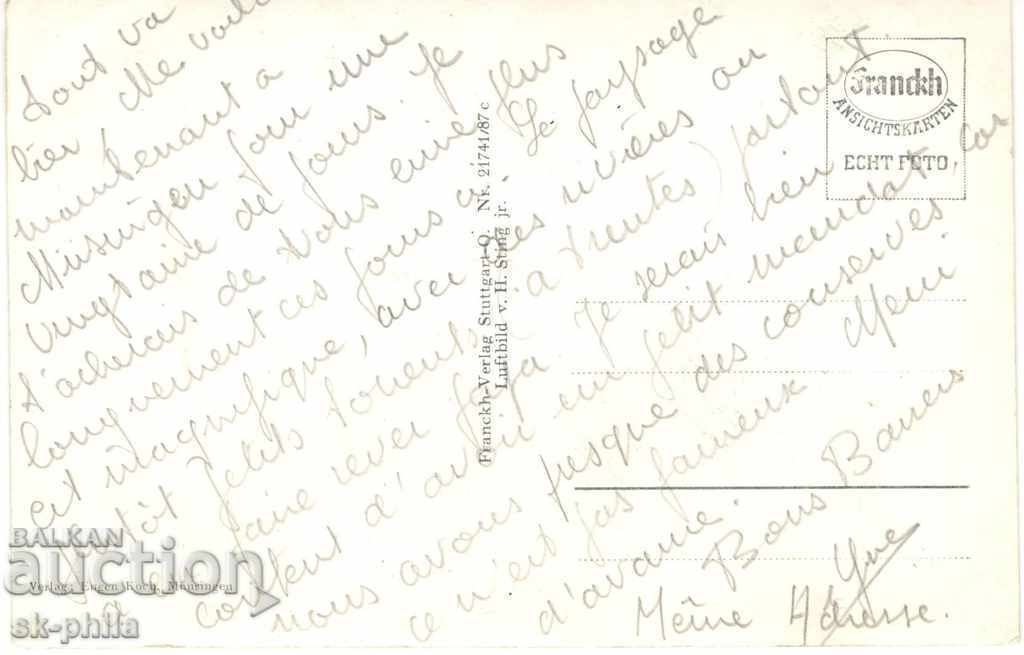 Tout va
bien Me voilà
maintenant a
Münsingen pour une
vingtaine de jours je
tacherais de vous ecrire plus
longuement ces jours ci. Le paysage
est magnifique, avec des rivières ou
plutôt petits torrents (à truites) partout
à faire rever Papa Je serais bien
content d'avoir un petit mandat, car
nous avons presque des conserves
ce n'est pas fameux Merci
d'avance. Bons Baisers
Yve
Même Adresse.
Franckh
ANSICHTSKARTEN
ECHT FOTO
Franckh-Verlag Stuttgart-O. Nr. 21741/87c
Luftbild v. H. Sting jr.
Verlag: Eugen Koch, Münsingen
BALKAN
auction
sk-phila